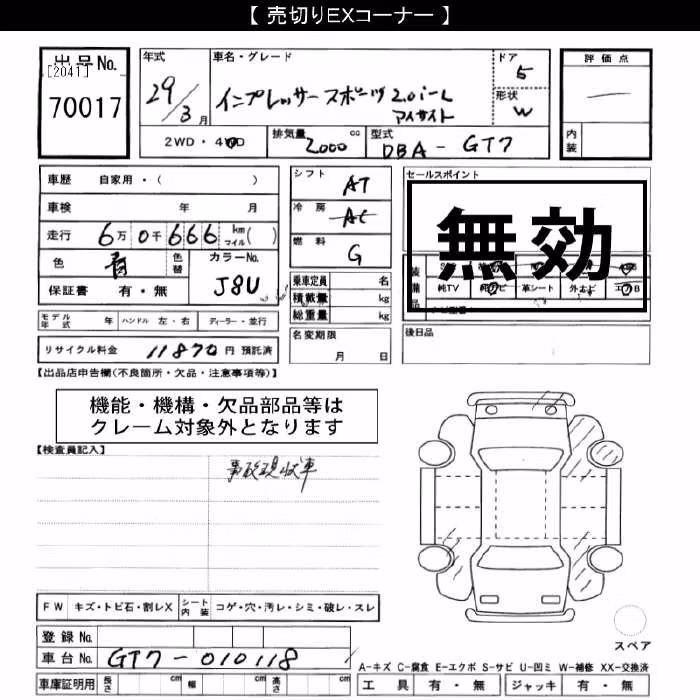 【 売切りEXコーナー 】
出品No.
[2041]
70017
年式
29/3月
車名・グレード
インプレッサースポーツ 2.0i-L
アイサイト
ドア
5
形状
W
評価点
内装
2WD・4WD
排気量
2000 cc
型式
DBA - GT7
車歴 自家用・( )
車検 年 月
走行 6万0千666 km マイル( )
色 青 色替
カラーNo.
J8U
保証書 有・無
シフト AT
冷房 AC
燃料 G
乗車定員 名
積載量 kg
総重量 kg
セールスポイント
無効
純TV 革シート
モデル年式 年 ハンドル 左・右 ディーラー・並行
名変期限
月 日
後日品
リサイクル料金 11870 円 預託済
【出品店申告欄(不良箇所・欠品・注意事項等)】
機能・機構・欠品部品等は
クレーム対象外となります
【検査員記入】
事故現状車
FW キズ・トビ石・割レX シート内装 コゲ・穴・汚レ・シミ・破レ・スレ
スペア
登録No.
車台No. GT7-010118
A-キズ C-腐食 E-エクボ S-サビ U-凹ミ W-補修 XX-交換済
車庫証明用 長さ cm 幅 cm 高さ cm
工具 有・無 ジャッキ 有・無